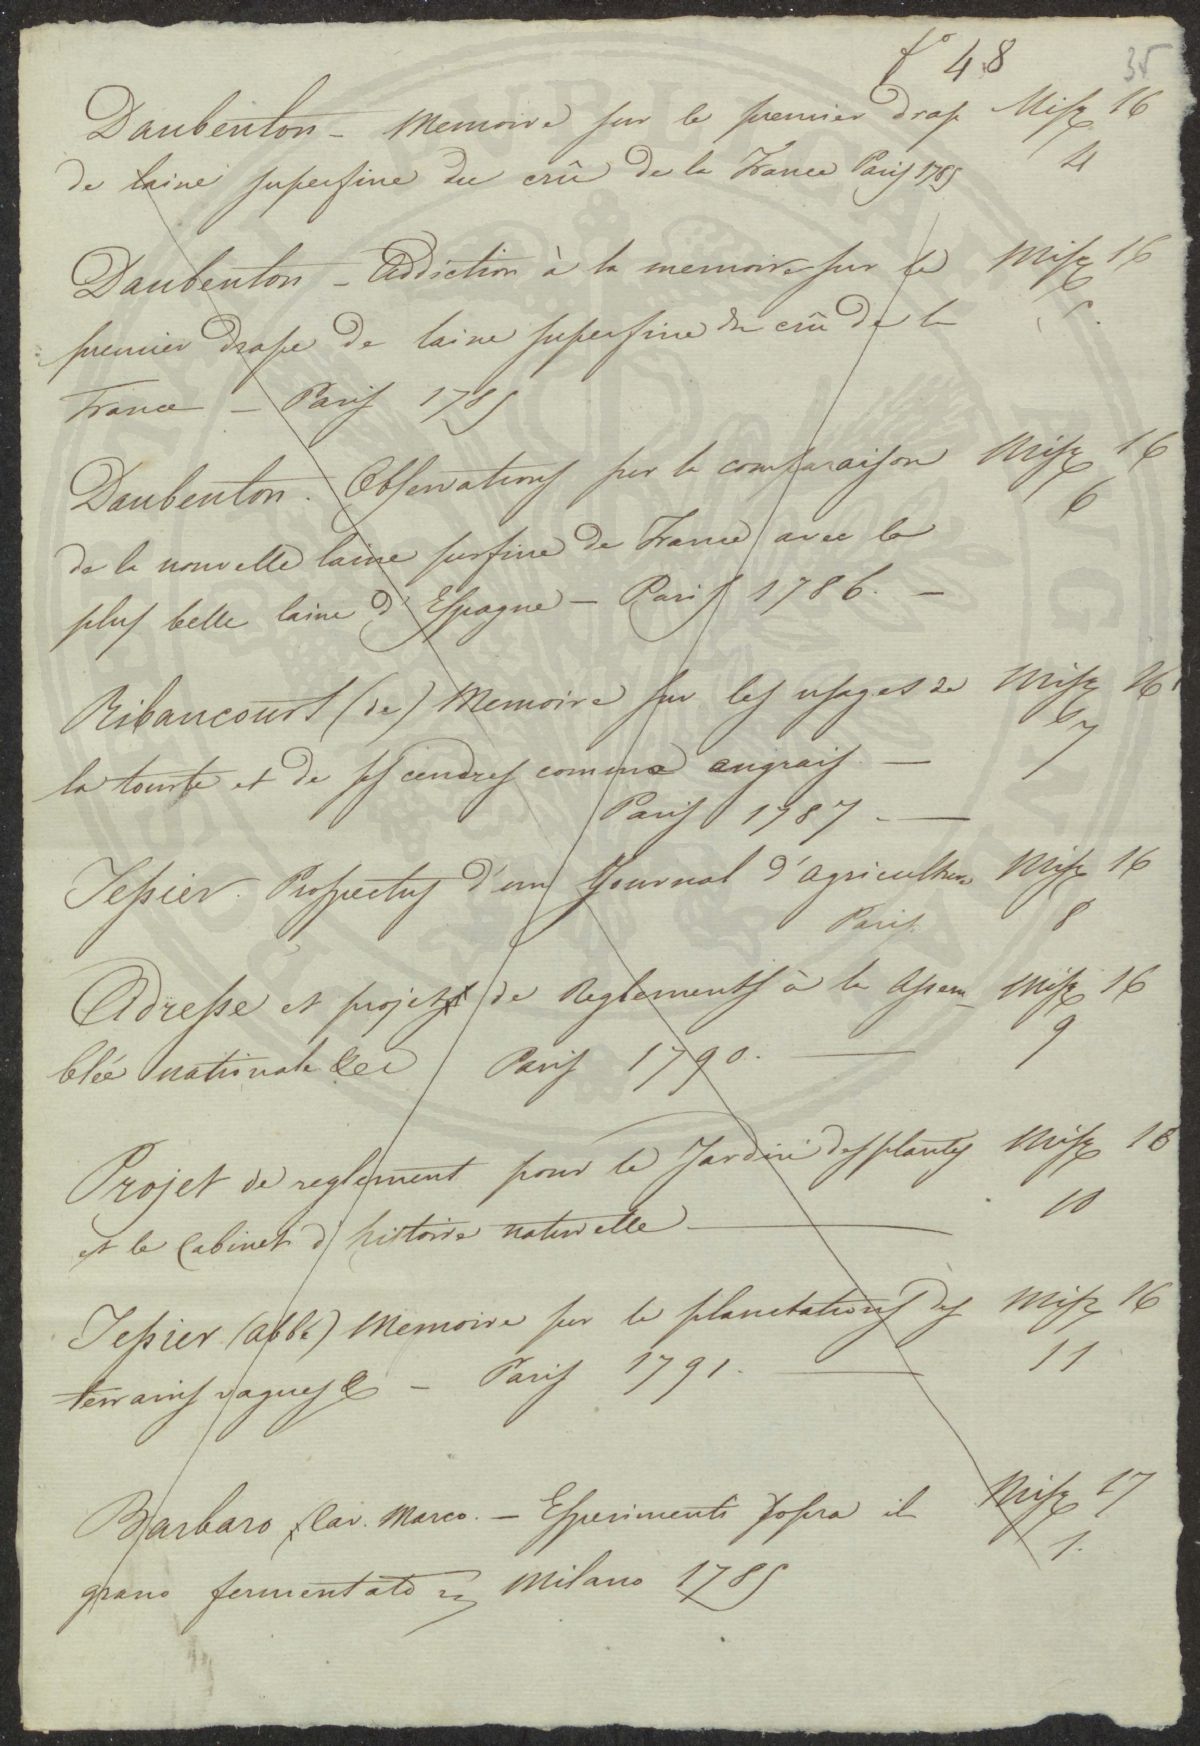 f.º 48
35
Daubenton – Memoire sur le premier drap Misc. 16
de laine superfine du crû de la France Paris 1785 4
Daubenton – Addiction à la memoire sur le Misc. 16
premier drape de laine superfine du crû de la 5.
France – Paris 1785
Daubenton. Observations sur la comparaison Misc. 16
6
de la nouvelle laine surfine de France avec la
plus belle laine d'Espagne – Paris 1786. –
Ribaucourt (de) Memoire sur les usages de Misc. 16
la tourbe et de ses cendres comme engrais – 7
Paris 1787. –
Tessier. Prospectus d'un Journal d'agriculture Misc. 16
Paris. 8
Adresse et projet de Reglements à la Assem- Misc. 16
blée nationale &c Paris 1790. – 9
Projet de reglement pour le Jardin des plantes Misc. 16
et le Cabinet d'histoire naturelle – 10
Tessier (abbé) Memoire sur le plantations des Misc. 16
terrains vagues & – Paris 1791. – 11
Barbaro Cav. Marco. – Esperimenti sopra il Misc. 17
grano fermentato Milano 1785 1.